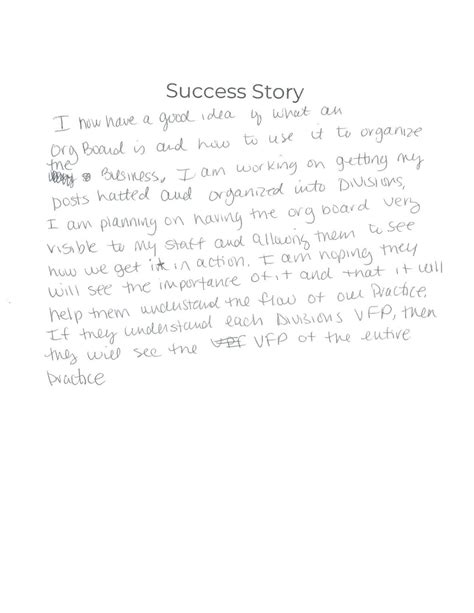 Success Story
I now have a good idea of what an
org Board is and how to use it to organize
the
Business. I am working on getting my
posts hatted and organized into Divisions,
I am planning on having the org board very
visible to my staff and allowing them to see
how we get it in action. I am hoping they
will see the importance of it and that it will
help them understand the flow of our Practice.
If they understand each Divisions VFP, then
they will see the VFP of the entire
practice